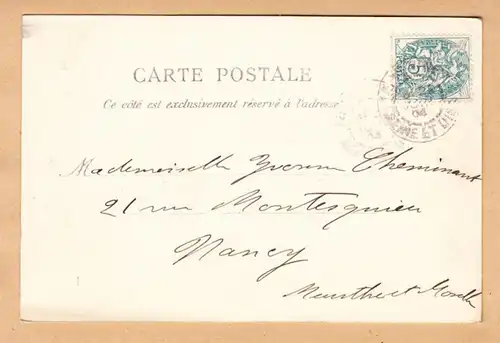 CARTE POSTALE
Ce côté est exclusivement réservé à l'adresse
5
04
ET
Mademoiselle Yvonne Cheminant
21 rue Montesquieu
Nancy
Meurthe et Moselle